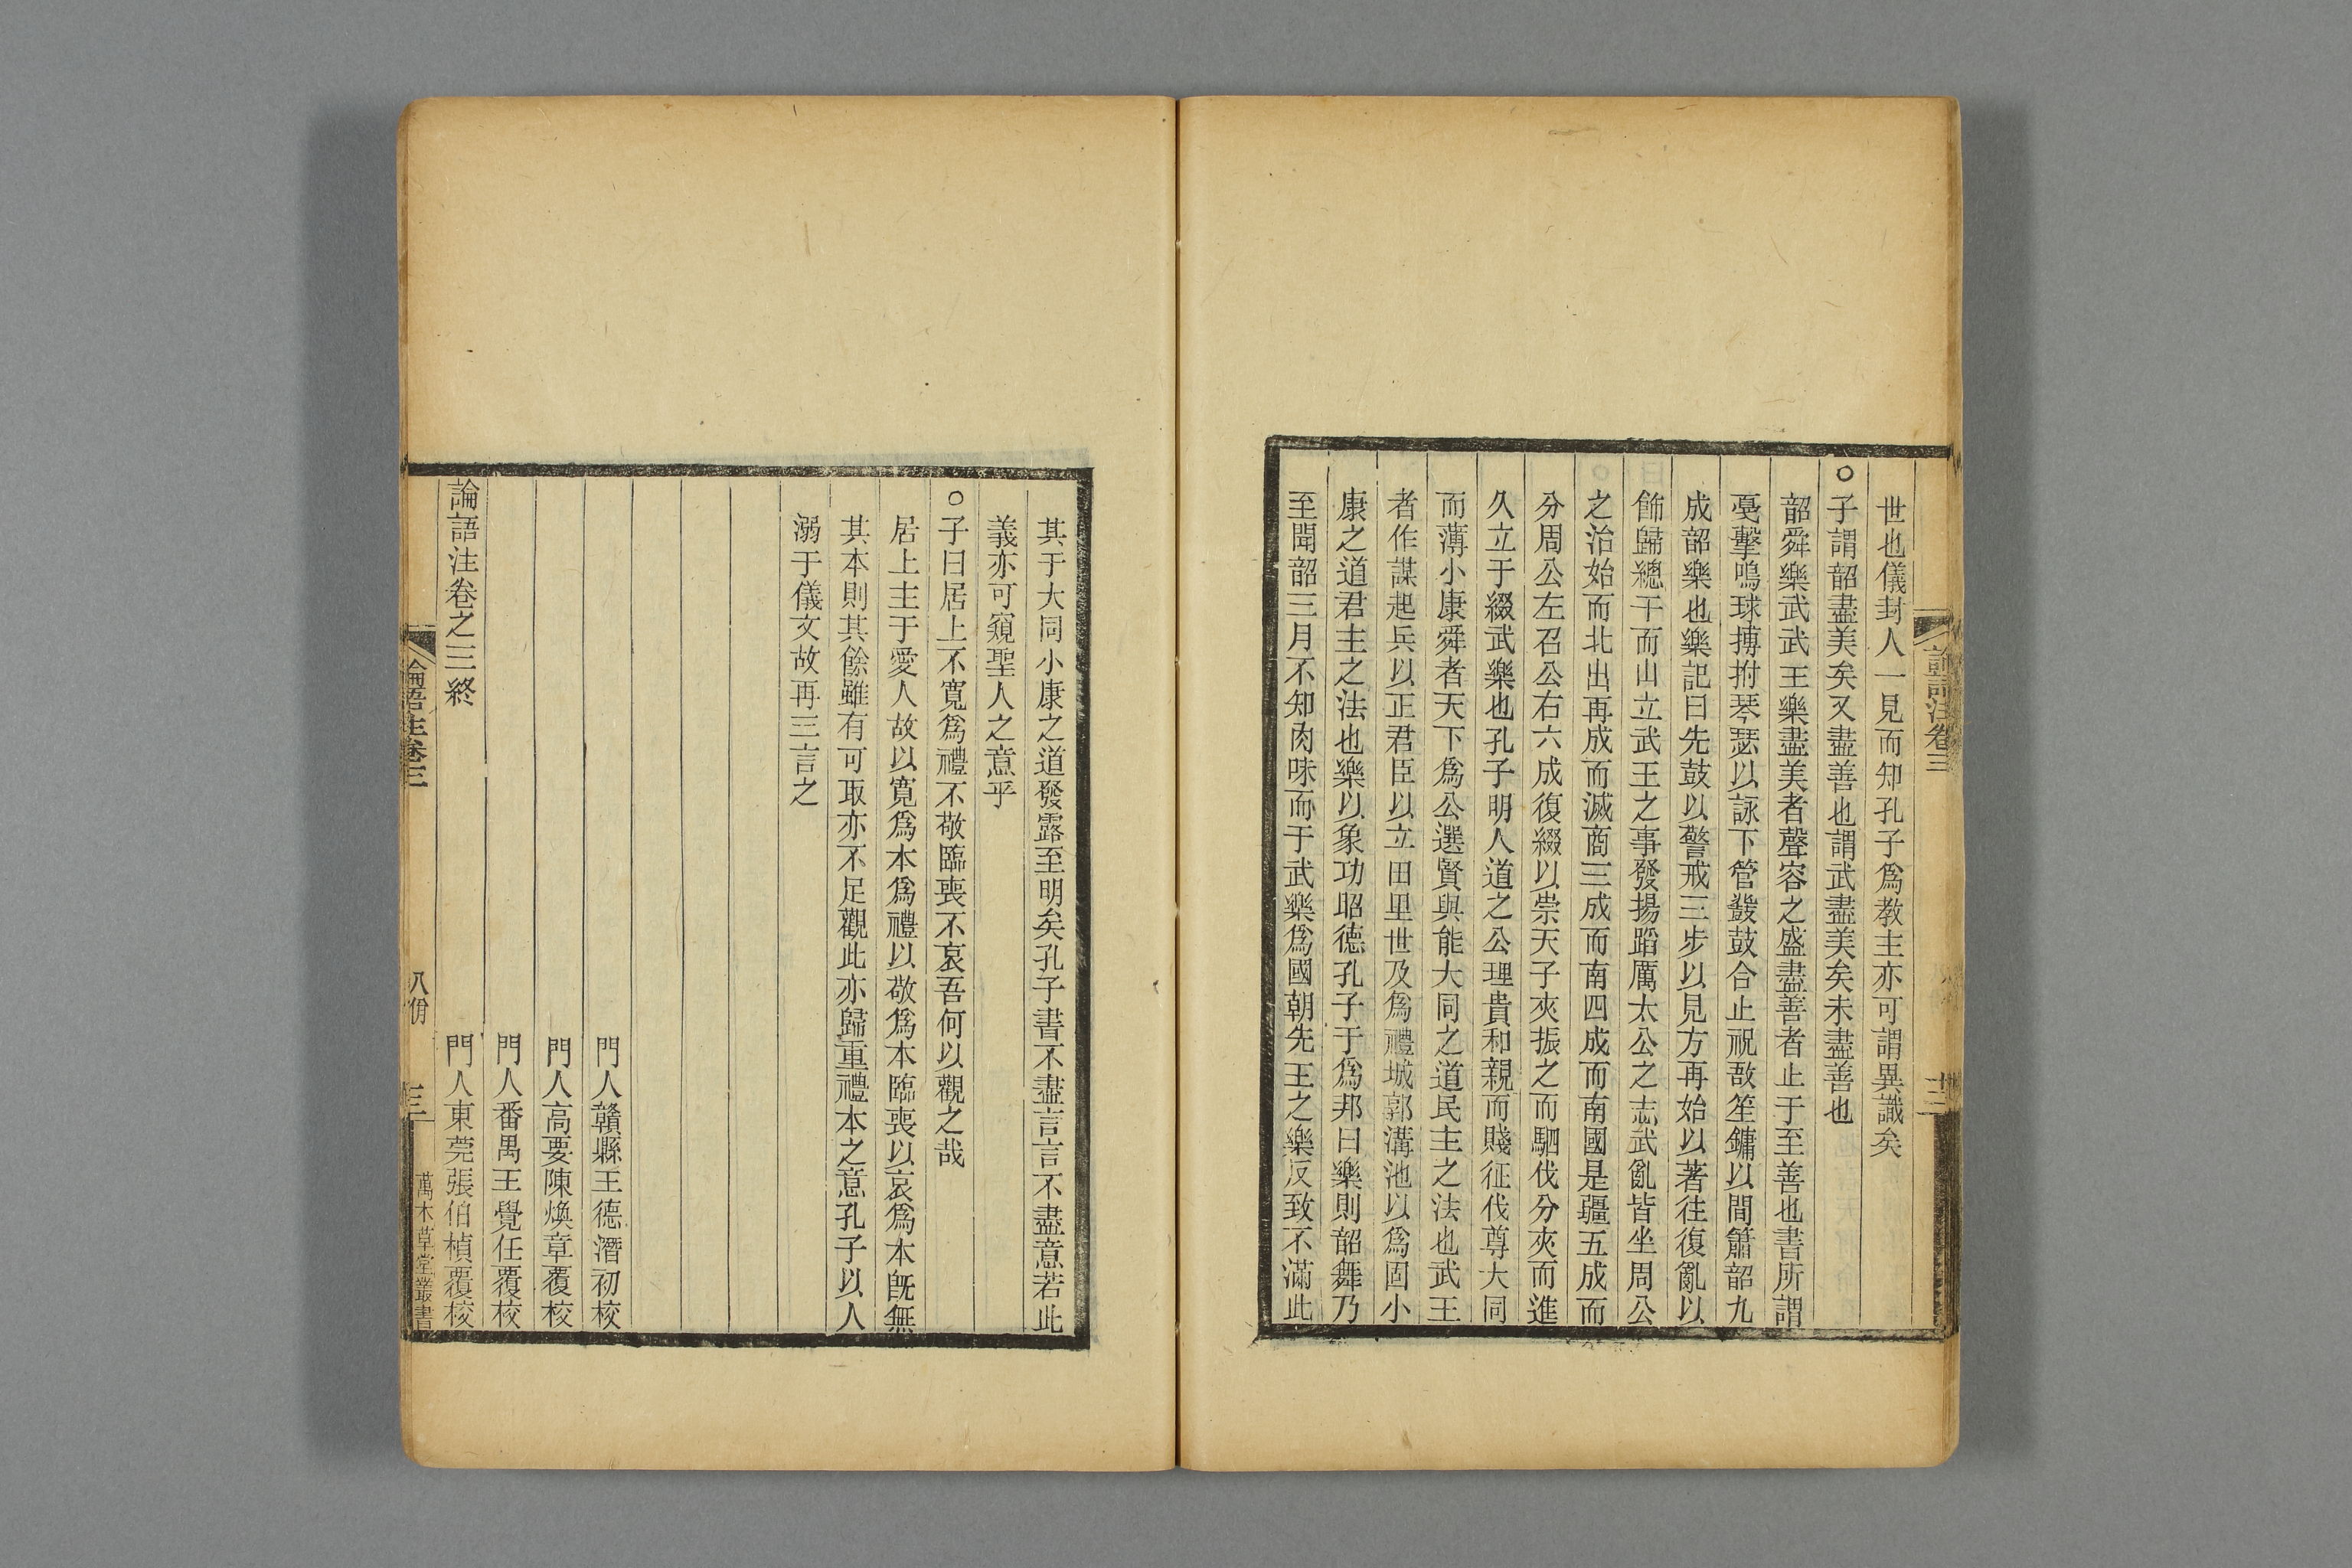 世也儀封人一見而知孔子爲教主亦可謂異識矣
○子謂韶盡美矣又盡善也謂武盡美矣未盡善也
韶舜樂武武王樂盡美者聲容之盛盡善者止于至善也書所謂
戞擊鳴球搏拊琴瑟以詠下管鼗鼓合止柷敔笙鏞以間簫韶九
成韶樂也樂記曰先鼓以警戒三步以見方再始以著往復亂以
飾歸總干而山立武王之事發揚蹈厲太公之志武亂皆坐周公
之治始而北出再成而滅商三成而南四成而南國是疆五成而
分周公左召公右六成復綴以崇天子夾振之而駟伐分夾而進
久立于綴武樂也孔子明人道之公理貴和親而賤征伐尊大同
而薄小康舜者天下爲公選賢與能大同之道民主之法也武王
者作謀起兵以正君臣以立田里世及爲禮城郭溝池以爲固小
康之道君主之法也樂以象功昭德孔子于爲邦曰樂則韶舞乃
至聞韶三月不知肉味而于武樂爲國朝先王之樂反致不滿此
其于大同小康之道發露至明矣孔子書不盡言言不盡意若此
義亦可窺聖人之意乎
○子曰居上不寬爲禮不敬臨喪不哀吾何以觀之哉
居上主于愛人故以寬爲本爲禮以敬爲本臨喪以哀爲本旣無
其本則其餘雖有可取亦不足觀此亦歸重禮本之意孔子以人
溺于儀文故再三言之
門人贛縣王德潛初校
門人高要陳煥章覆校
門人番禺王覺任覆校
論語注卷之三終
門人東莞張伯楨覆校
論語注卷三
八佾
萬木草堂叢書